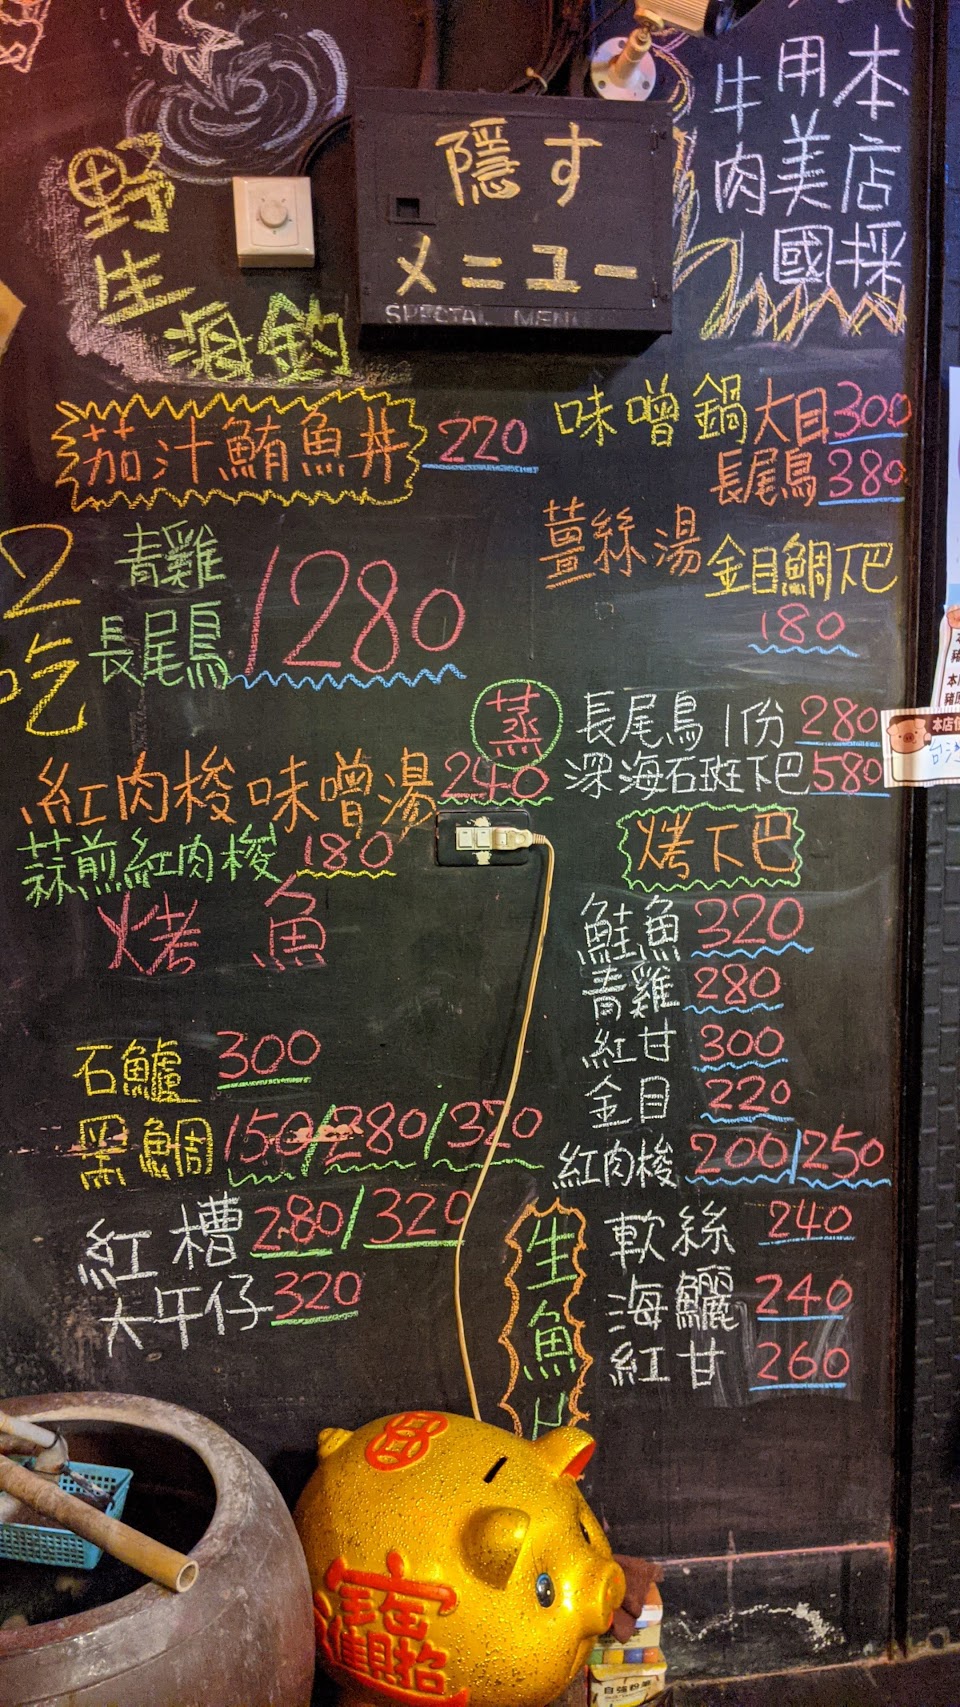 野生海釣
隠す
メニュー
SPECIAL MENU
本店採
用美國
牛肉
茄汁鮪魚丼 220
味噌鍋 大目 300
長尾鳥 380
薑絲湯 金目鯛下巴
180
2吃
青雞
長尾鳥 1280
蒸
長尾鳥1份 280
深海石斑下巴 580
紅肉梭味噌湯 240
蒜煎紅肉梭 180
烤魚
石鱸 300
黑鯛 150/280/320
紅糟 280/320
大午仔 320
烤下巴
鮭魚 320
青雞 280
紅甘 300
金目 220
紅肉梭 200/250
生魚片
軟絲 240
海鱺 240
紅甘 260
招財進寶
自強粉筆